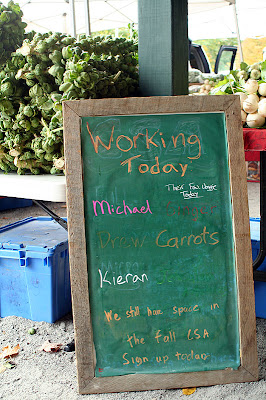 Working
Today
Their Fav. Veggie
Today
Michael
Drew Carrots
Kieran
We still have space in
the fall CSA
Sign up today